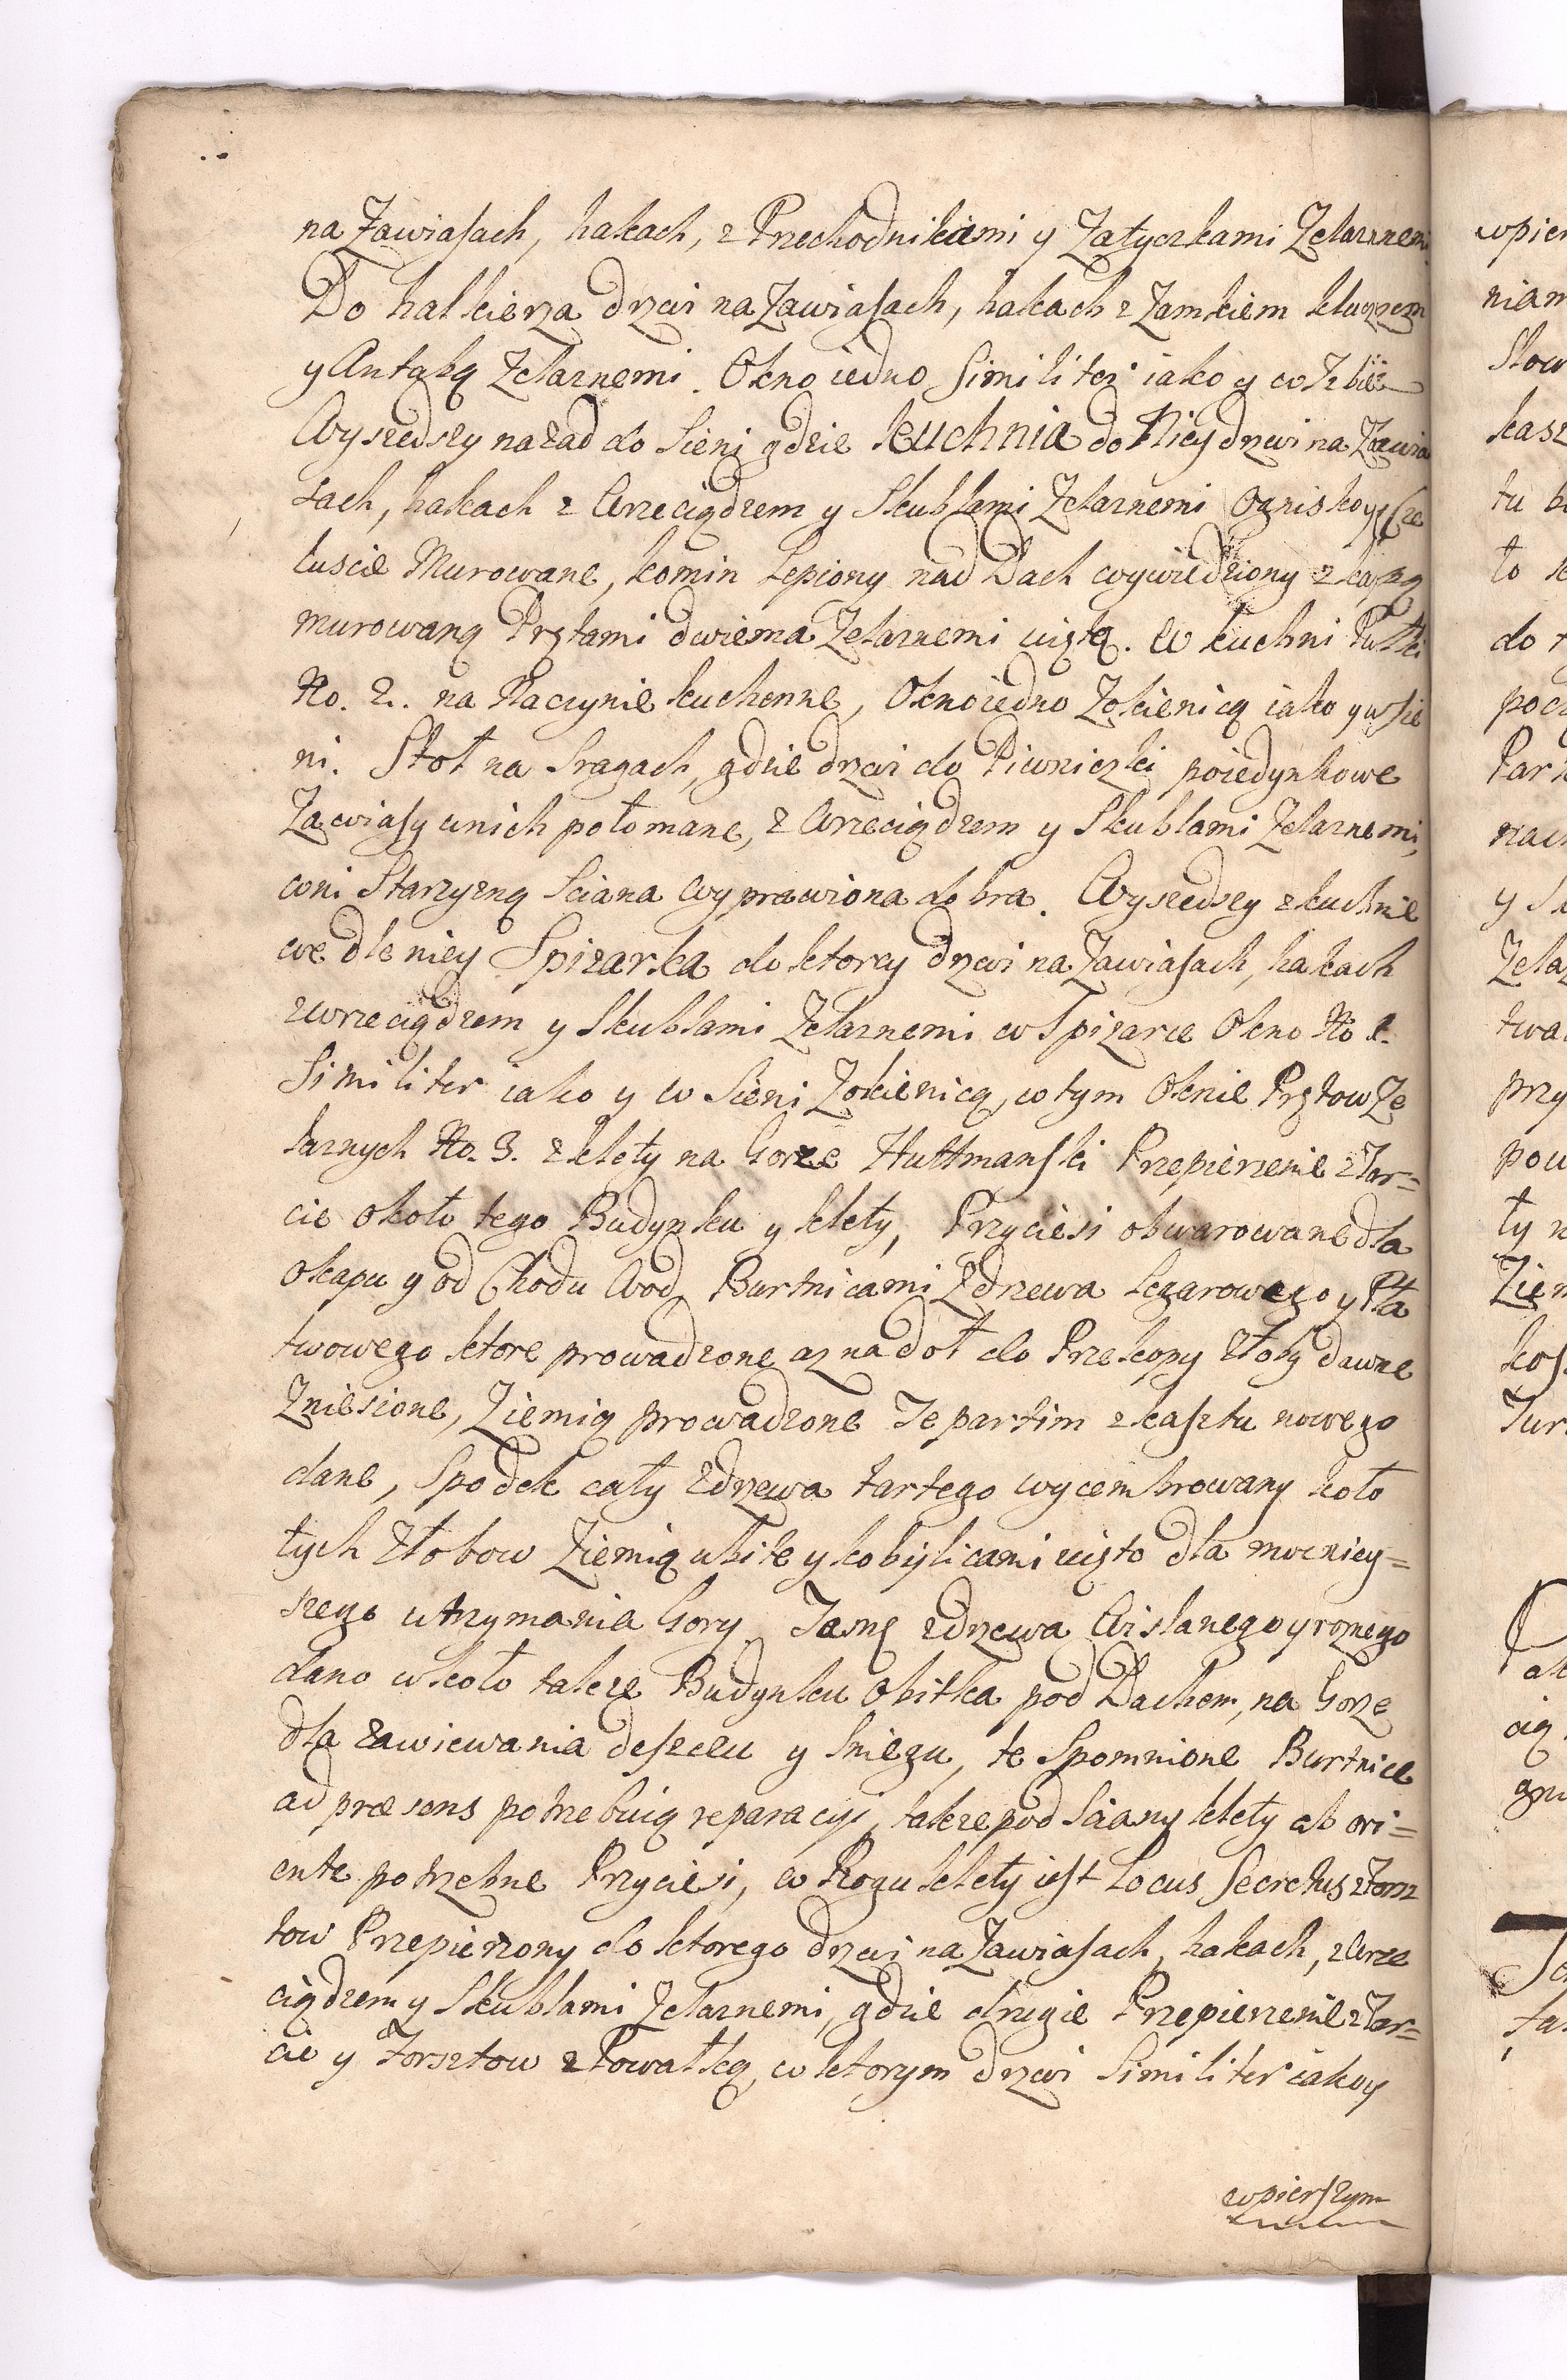 na Zawiasach, hakach, z Przechodnikami y Zatyczkami Zelaznemi
Do halkierza drzwi na Zawiasach, hakach z Zamkiem kluczem
y Antabą Zelaznemi. Okno iedno Similiter iako y w Izbie
Wyszedszy nazad do Sieni gdzie Kuchnia do Niey drzwi na Zawia
sach, hakach z Wrzeciądzem y Skublami Zelaznemi Ognisko y Cze
luscie Murowane, komin Lepiony nad Dach wywiedziony z kapą
murowaną Prętami dwiema Zelaznemi uiętą. W kuchni Pułki
No. 2. na Naczynie kuchenne, Okno iedno Zokienicą iako y w Sie
ni. Stoł na Sragach, gdzie drzwi do Piwniczki poiedynkowe
Zawiasy u nich połomane, z Wrzeciądzem y Skublami Zelaznemi,
w ni Starzyzną Sciana Wyprawiona dobra. Wyszedszy z kuchnie
we dle niey Spizarka do ktorey drzwi na Zawiasach, hakach
z wrzeciądzem y Skublami Zelaznemi w Spizarce Okno No 1.
Similiter iako y w Sieni Zokienicą, w tym Oknie Prętow Ze
laznych No. 3. z klety na Gorze Huttmanski Przepierzenie z Tar=
cie około tego Budynku y klety, Przyciesi obwarowane dla
Okapu y od Chodu Wod Burtnicami Zdrzewa Legarowego y Pła
twowego ktore prowadzone az na doł do Przekopy Złoby dawne
Zniesione, Ziemią prowadzone Te partim z kasztu nowego
dane, Spodek cały z drzewa tartego wycembrowany koło
tych Złobow Ziemią ubite y kobylicami uięto dla mocniey=
szego utrzymania Gory. Tamę z drzewa Wislanego y roznego
dano w koło takze Budynku Obitka pod Dachem, na Gorze
dla zawiewania deszczu y Sniegu, te Spomnione Burtnice
ad præsens potrzebuią reparacyi, takze pod Sciany klety ab ori=
ente potrzebne Przyciesi, w Rogu klety iest Locus Secretus z Forsz
tow Przepierzony do ktorego drzwi na Zawiasach, hakach, z Wrze
ciądzem y Skublami Zelaznemi, gdzie drugie Przepierzenie z Tar=
cie y Forsztow z Powałką, w ktorym drzwi Similiter iako y
w pierszym
wpier
niam
Słow
kasz
tu
to
do
pocz
Par
nach
y
Zelaz
twa
przy
pow
ty
Ziem
kos
ak
cią
gru